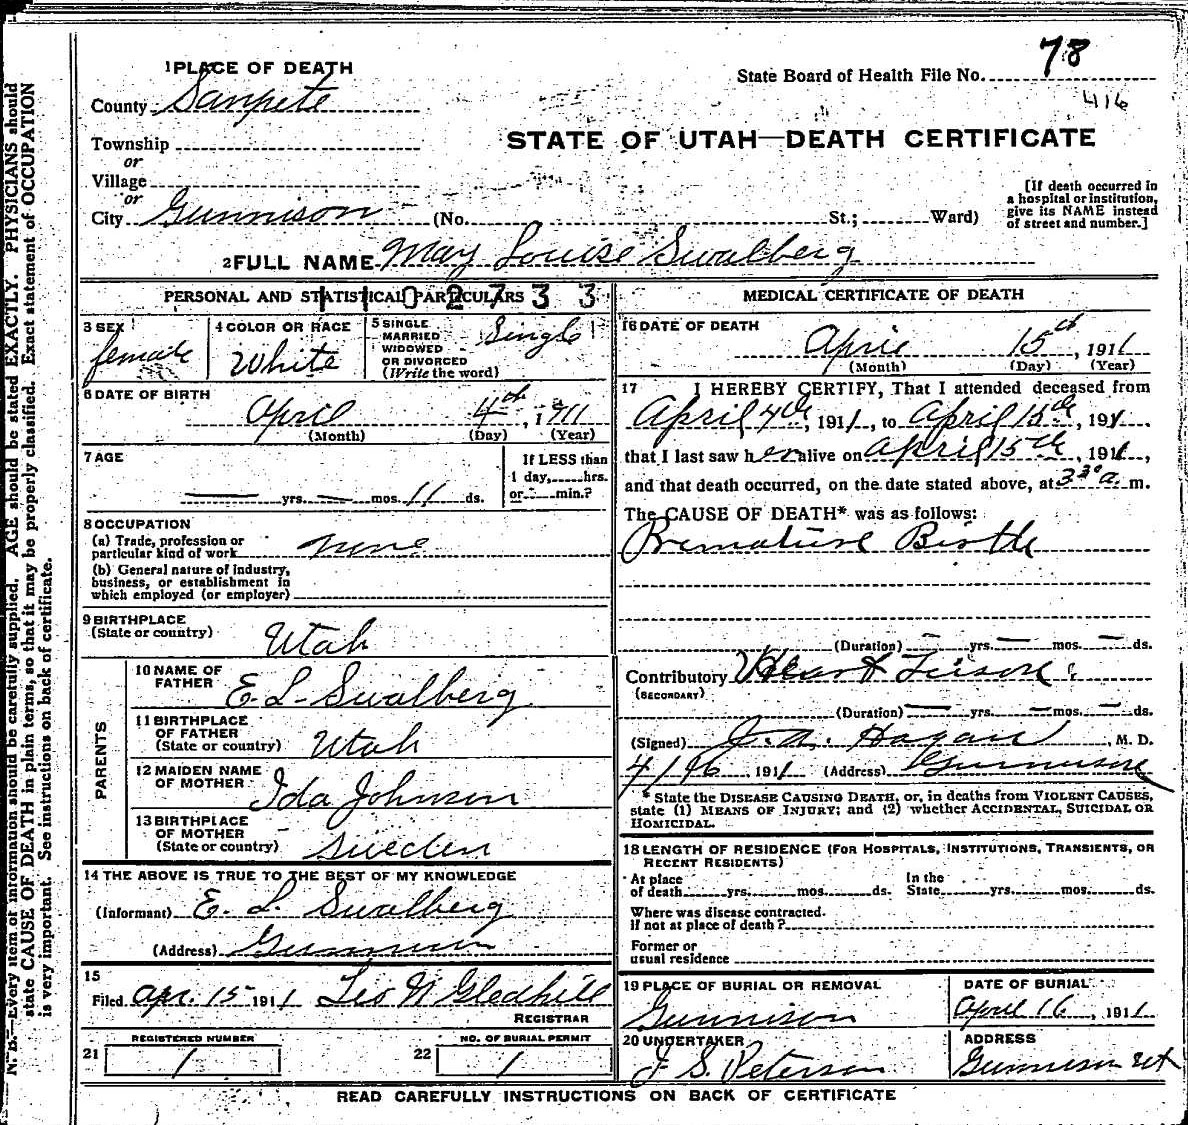 78
State Board of Health File No.
416
1 PLACE OF DEATH
County Sanpete
STATE OF UTAH—DEATH CERTIFICATE
Township
or
Village
or
City Gunnison (No. St.; Ward)
[If death occurred in
a hospital or institution,
give its NAME instead
of street and number.]
2 FULL NAME May Louise Swalberg
PERSONAL AND STATISTICAL PARTICULARS
1102733
3 SEX
female
4 COLOR OR RACE
White
5 SINGLE
MARRIED
WIDOWED
OR DIVORCED
(Write the word)
Single
6 DATE OF BIRTH
April 4th, 1911
(Month) (Day) (Year)
7 AGE
— yrs. — mos. 11 ds.
If LESS than
1 day, hrs.
or min.?
8 OCCUPATION
(a) Trade, profession or
particular kind of work none
(b) General nature of industry,
business, or establishment in
which employed (or employer)
9 BIRTHPLACE
(State or country)
Utah
PARENTS
10 NAME OF
FATHER
E. L. Swalberg
11 BIRTHPLACE
OF FATHER
(State or country) Utah
12 MAIDEN NAME
OF MOTHER
Ida Johnson
13 BIRTHPLACE
OF MOTHER
(State or country) Sweden
14 THE ABOVE IS TRUE TO THE BEST OF MY KNOWLEDGE
(Informant) E. L. Swalberg
(Address) Gunnison
15
Filed Apr. 15 1911 Leo W Gledhill
REGISTRAR
REGISTERED NUMBER
21 1
NO. OF BURIAL PERMIT
22 1
MEDICAL CERTIFICATE OF DEATH
16 DATE OF DEATH
April 15th, 1911
(Month) (Day) (Year)
17 I HEREBY CERTIFY, That I attended deceased from
April 4th, 1911, to April 15th, 1911.
that I last saw her alive on April 15th, 1911,
and that death occurred, on the date stated above, at 3 30 a. m.
The CAUSE OF DEATH* was as follows:
Premature Birth
(Duration) — yrs. — mos. — ds.
Contributory Heart
(SECONDARY)
(Duration) — yrs. — mos. — ds.
(Signed) J. A. Hagan, M. D.
4/16, 1911 (Address) Gunnison
* State the DISEASE CAUSING DEATH, or, in deaths from VIOLENT CAUSES,
state (1) MEANS OF INJURY; and (2) whether ACCIDENTAL, SUICIDAL OR
HOMICIDAL.
18 LENGTH OF RESIDENCE (FOR HOSPITALS, INSTITUTIONS, TRANSIENTS, OR
RECENT RESIDENTS)
At place
of death yrs. mos. ds.
In the
State yrs. mos. ds.
Where was disease contracted.
If not at place of death?
Former or
usual residence
19 PLACE OF BURIAL OR REMOVAL
Gunnison
DATE OF BURIAL
April 16, 1911
20 UNDERTAKER
J S. Peterson
ADDRESS
Gunnison Ut
READ CAREFULLY INSTRUCTIONS ON BACK OF CERTIFICATE
N. B.—Every item of information should be carefully supplied. AGE should be stated EXACTLY. PHYSICIANS should
state CAUSE OF DEATH in plain terms, so that it may be properly classified. Exact statement of OCCUPATION
is very important. See instructions on back of certificate.